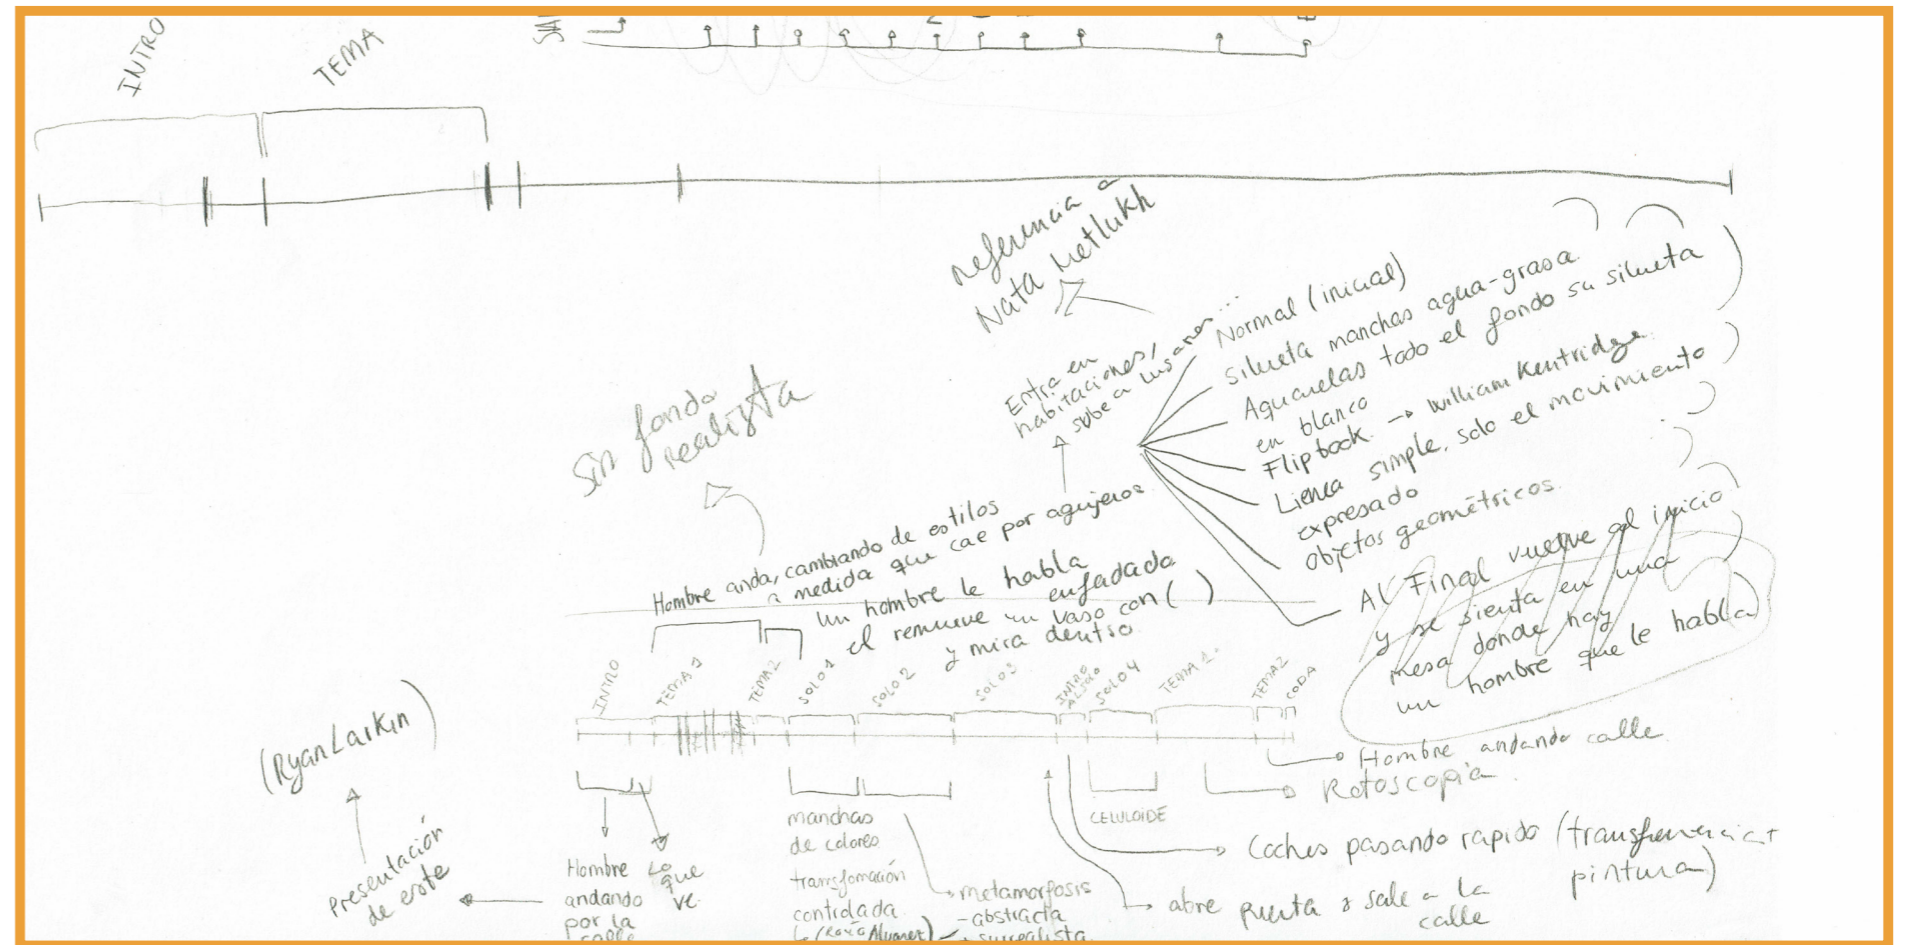 INTRO
TEMA
referencia a
Nata Metlukh
Entra en
habitaciones,
sube a
Normal (inicial)
silueta manchas agua-grasa
Aquarelas todo el fondo su silueta
en blanco
Flipbook → William Kentridge
Lienea simple, solo el movimiento
expresado
Objetos geométricos.
Al Final vuelve al inicio
y se sienta en una
mesa donde hay
un hombre que le habla
Sin fondo
realista
Hombre anda, cambiando de estilos
a medida que cae por agujeros
Un hombre le habla
enfadado
el remueve un vaso con ( )
y mira dentro
INTRO
TEMA 1
TEMA 2
SOLO 1
SOLO 2
SOLO 3
INTRO
AL SOLO
SOLO 4
TEMA 1
TEMA 2
CODA
(Ryan Larkin)
Presentación
de este
Hombre
andando
por la
calle
Lo
que
ve.
manchas
de colores
transfomación
controlada
Alvarez)
metamorfosis
- abstracta
surrealista
CELULOIDE
Hombre andando calle
Rotoscopia
Coches pasando rapido (
pintura)
abre puerta y sale a la
calle